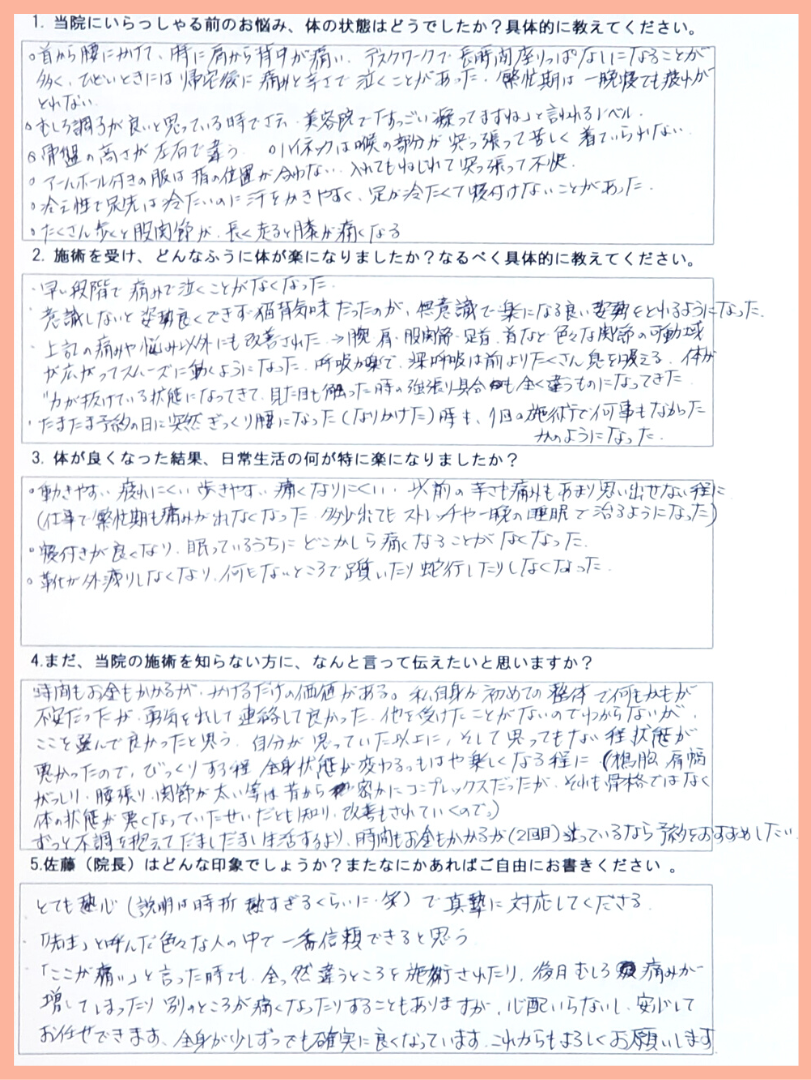 1. 当院にいらっしゃる前のお悩み、体の状態はどうでしたか?具体的に教えてください。
○首から腰にかけて、特に肩から背中が痛い. デスクワークで長時間座りっぱなしになることが
多く、ひどいときには帰宅後に痛みと辛さで泣くことがあった. 繁忙期は一晩寝ても疲れが
とれない.
○むしろ調子が良いと思っている時でさえ、美容院で「すっごい凝ってますね」と言われるレベル.
○骨盤の高さが左右で違う. ○ハイネックは喉の部分が突っ張って苦しく着ていられない.
○アームホール付きの服は指の位置が合わない. 入れてもねじれて突っ張って不快.
○冷え性で足先は冷たいのに汗をかきやすく、足が冷たくて寝付けないことがあった.
○たくさん歩くと股関節が、長く走ると膝が痛くなる
2. 施術を受け、どんなふうに体が楽になりましたか?なるべく具体的に教えてください。
・早い段階で痛みで泣くことがなくなった.
・意識しないと姿勢良くできず猫背気味だったのが、無意識で楽になる良い姿勢をとれるようになった.
・上記の痛みや悩み以外にも改善された→腕、肩・股関節・足首、首など色々な関節の可動域
が広がってスムーズに動くようになった. 呼吸が楽で、深呼吸は前よりたくさん息を吸える. 体が
力が抜けている状態になってきて、見た目も触った時の強張り具合も全く違うものになってきた.
・たまたま予約の日に突然ぎっくり腰になった(なりかけた)時も、1回の施術で何事もなかった
かのようになった.
3. 体が良くなった結果、日常生活の何が特に楽になりましたか?
○動きやすい 疲れにくい 歩きやすい 痛くなりにくい・以前の辛さも痛みもあまり思い出せない程に
(仕事で繁忙期も痛みがでなくなった 多少出てもストレッチや一晩の睡眠で治るようになった)
○寝付きが良くなり、眠っているうちにどこかしら痛くなることがなくなった.
○靴が外減りしなくなり、何もないところで躓いたり蛇行したりしなくなった.
4.まだ、当院の施術を知らない方に、なんと言って伝えたいと思いますか?
時間もお金もかかるが、かけるだけの価値がある。私自身が初めての整体で何もかもが
不安だったが、勇気を出して連絡して良かった. 他を受けたことがないのでわからないが、
ここを選んで良かったと思う. 自分が思っていた以上に、そして思ってもない程状態が
悪かったので、びっくりする程全身状態が変わる。もはや楽しくなる程に (椀胞、肩幅
がっしり・腰張り、関節が太い等は昔から密かにコンプレックスだったが、それも骨格ではなく
体の状態が悪くなっていたせいだとも知り、改善もされていくので。)
ずっと不調を抱えてだましだまし生活するより、時間もお金もかかるが(2回目)迷っているなら予約をおすすめしたい.
5.佐藤(院長)はどんな印象でしょうか?またなにかあればご自由にお書きください 。
とても熱心(説明は時折熱すぎるくらいに・笑)で真摯に対応してくださる.
・「先生」と呼んだ色々な人の中で一番信頼できると思う
・「ここが痛い」と言った時でも、全っ然違うところを施術されたり、後日むしろ痛みが
増してしまったり別のところが痛くなったりすることもありますが、心配いらないし、安心して
お任せできます、全身が少しずつでも確実に良くなっています. これからもよろしくお願いします.